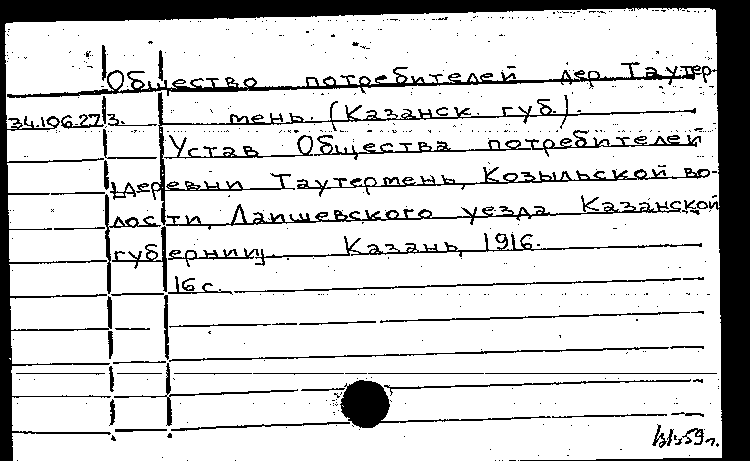 Общество потребителей дер. Таутер-
34.106.27/3. мень. (Казанск. губ.).
Устав Общества потребителей
деревни Таутермень, Козыльской во-
лости, Лаишевского уезда Казанской
губернии. Казань, 1916.
16 с.